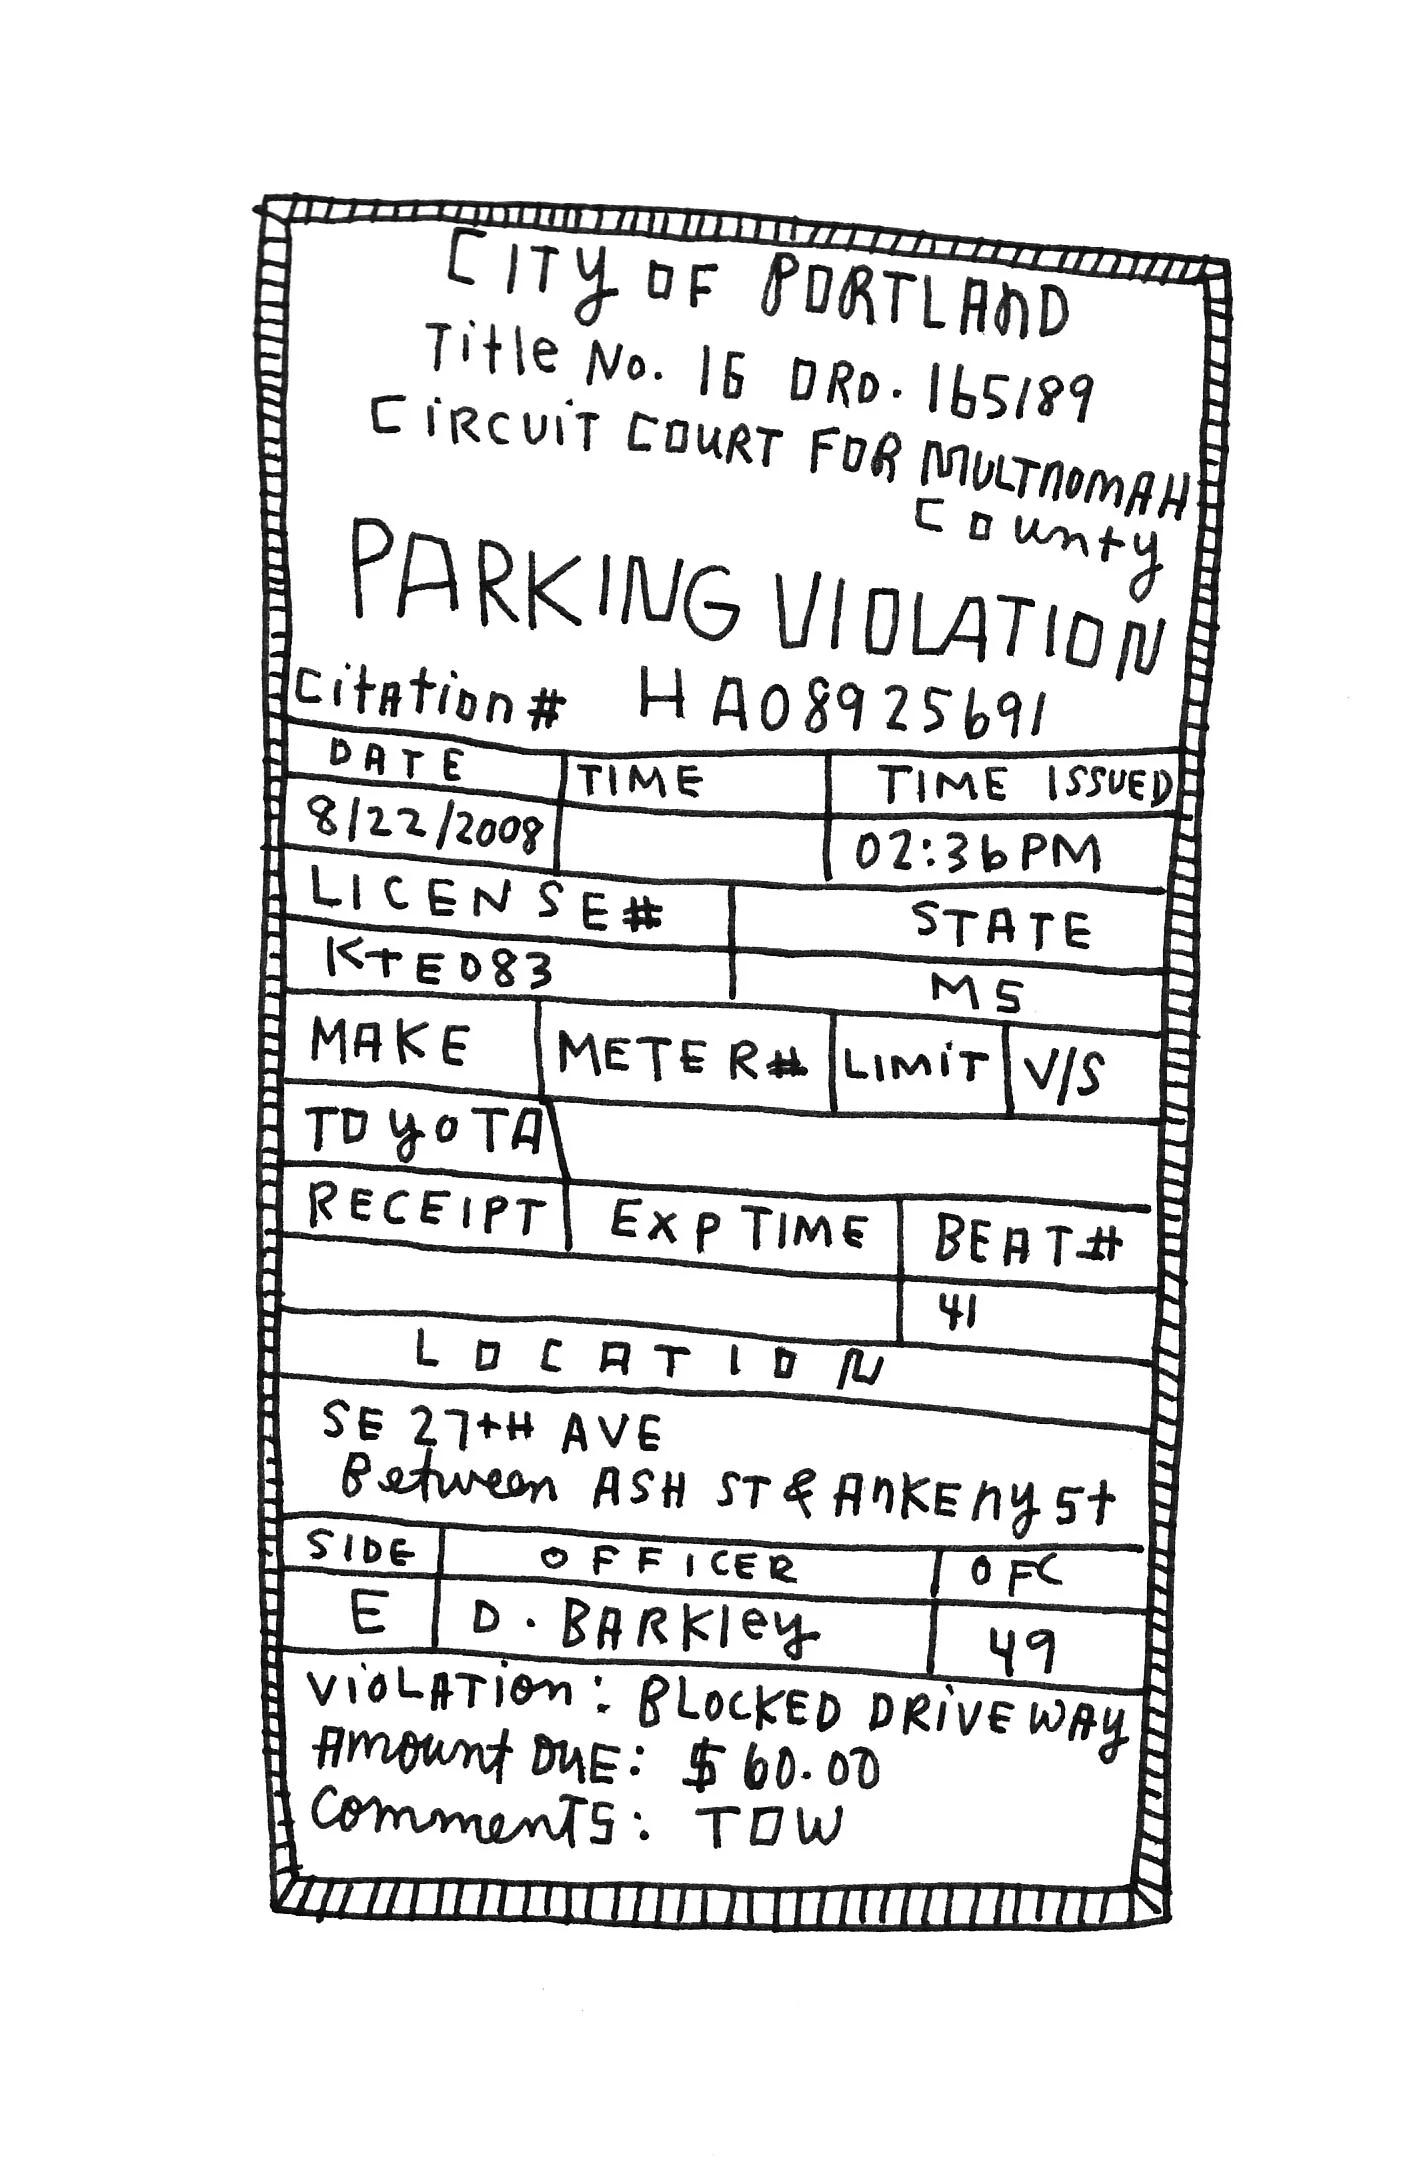 CITY OF PORTLAND
Title No. 16 ORD. 165189
CIRCUIT COURT FOR MULTNOMAH
County
PARKING VIOLATION
Citation# HA08925691
DATE TIME TIME ISSUED
8/22/2008 02:36PM
LICENSE# STATE
KTED83 MS
MAKE METER# LIMIT V/S
TOYOTA
RECEIPT EXP TIME BEAT#
41
LOCATION
SE 27TH AVE
Between ASH ST & ANKENY St
SIDE OFFICER OFC
E D. BARKley 49
VIOLATION: BLOCKED DRIVEWAY
Amount DUE: $60.00
Comments: TOW